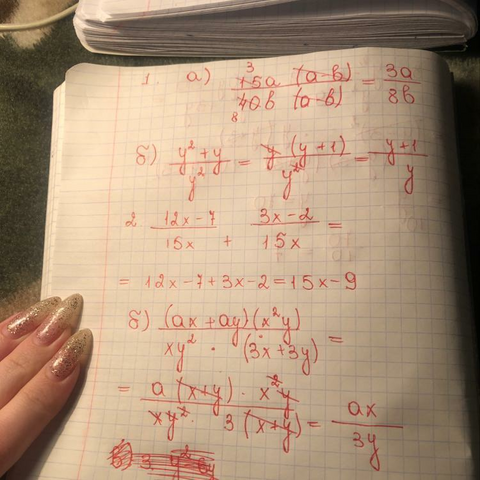 1. а) 15a (a-b) / 40b (a-b) = 3a / 8b
б) y² + y / y² = y (y+1) / y² = y+1 / y
2. 12x-7 / 15x + 3x-2 / 15x =
= 12x-7+3x-2 = 15x-9
б) (ax + ay)(x²y) / xy² · (3x+3y) =
= a (x+y) · x²y / xy² · 3 (x+y) = ax / 3y